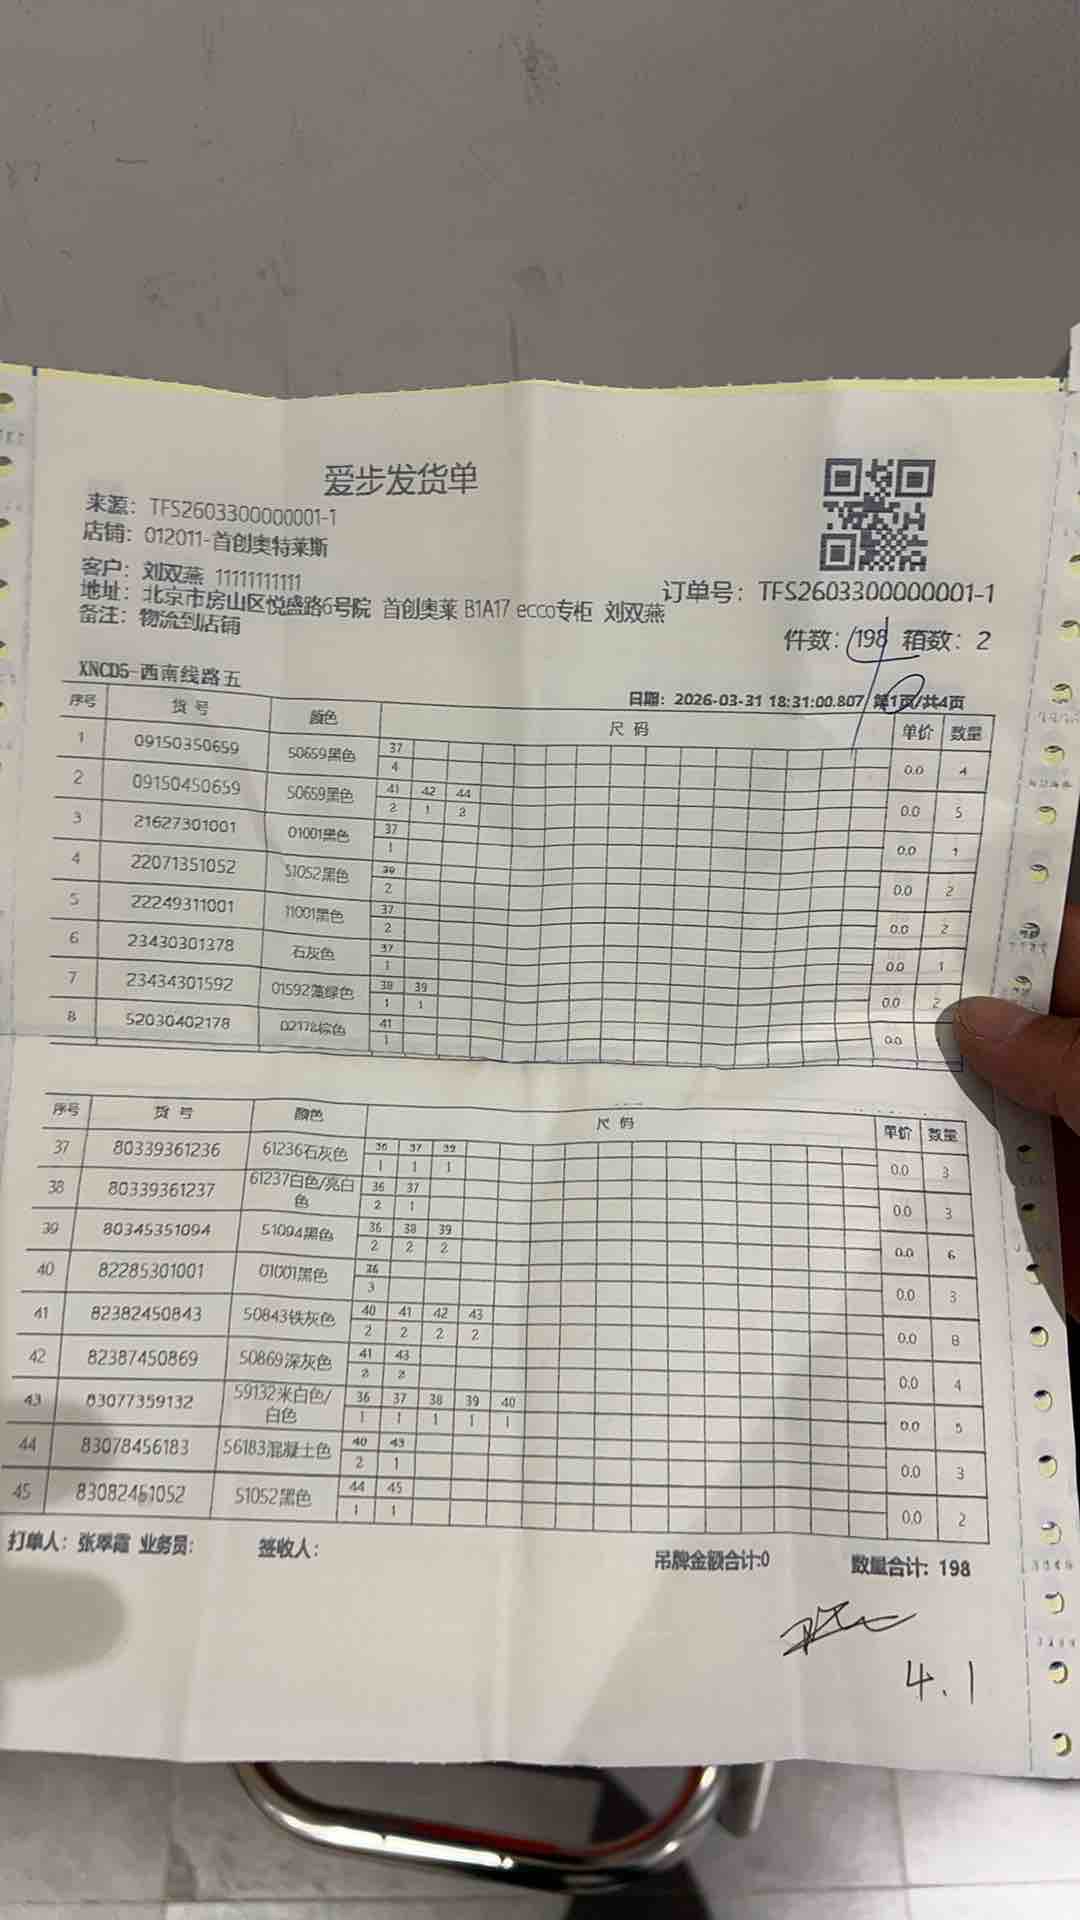 爱步发货单
来源：TFS2603300000001-1
店铺：012011-首创奥特莱斯
客户：刘双燕 11111111111
订单号：TFS2603300000001-1
地址：北京市房山区悦盛路6号院 首创奥莱 B1A17 ecco专柜 刘双燕
备注：物流到店铺
件数：198 箱数：2
XNCD5-西南线路五
日期：2026-03-31 18:31:00.807 第1页/共4页
序号 货号 颜色 尺码 单价 数量
1 09150350659 50659黑色 37 0.0 4
4
2 09150450659 50659黑色 41 42 44 0.0 5
2 1 2
3 21627301001 01001黑色 37 0.0 1
1
4 22071351052 51052黑色 39 0.0 2
2
5 22249311001 11001黑色 37 0.0 2
2
6 23430301378 石灰色 37 0.0 1
1
7 23434301592 01592藻绿色 38 39 0.0 2
1 1
8 52030402178 02178棕色 41 0.0
1
序号 货号 颜色 尺码 单价 数量
37 80339361236 61236石灰色 36 37 39 0.0 3
1 1 1
38 80339361237 61237白色/亮白色 36 37 0.0 3
2 1
39 80345351094 51094黑色 36 38 39 0.0 6
2 2 2
40 82285301001 01001黑色 36 0.0 3
3
41 82382450843 50843铁灰色 40 41 42 43 0.0 8
2 2 2 2
42 82387450869 50869深灰色 41 43 0.0 4
2 2
43 83077359132 59132米白色/白色 36 37 38 39 40 0.0 5
1 1 1 1 1
44 83078456183 56183混凝土色 40 43 0.0 3
2 1
45 83082451052 51052黑色 44 45 0.0 2
1 1
打单人：张翠霞 业务员： 签收人： 吊牌金额合计:0 数量合计：198
4.1